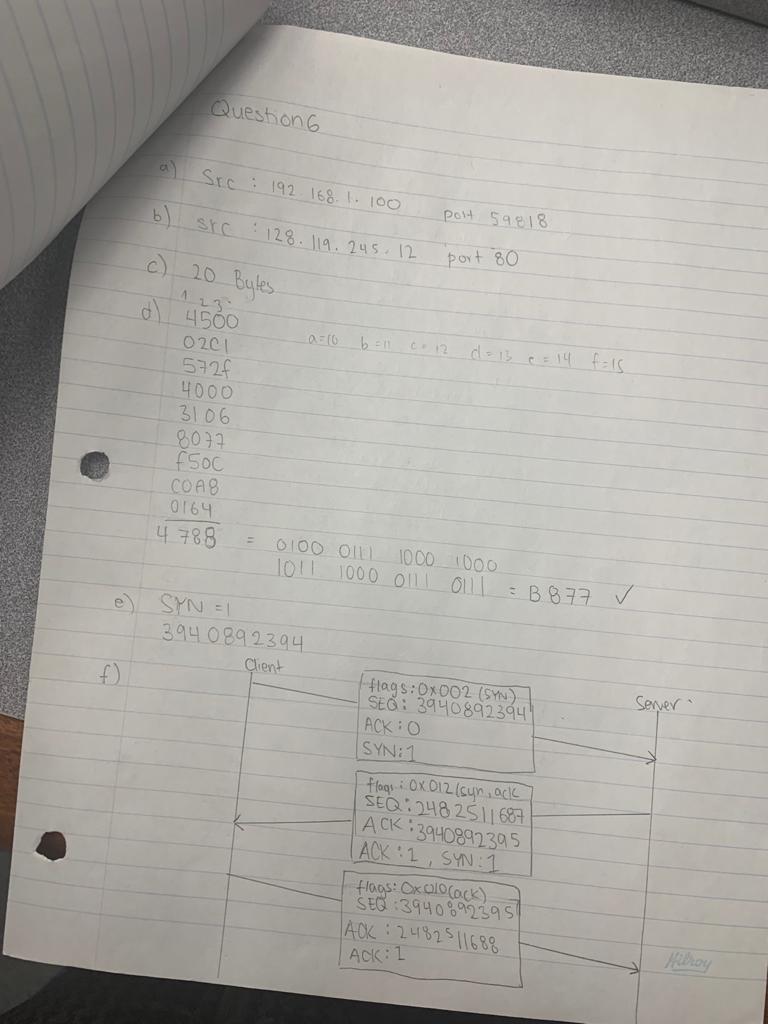 Question 6
a) Src : 192.168.1.100 port 59818
b) src : 128.119.245.12 port 80
c) 20 Bytes
1 2 3
d) 4500
02C1 a=10 b=11 c=12 d=13 e=14 f=15
572f
4000
3106
8077
f50C
C0A8
0164
4788 = 0100 0111 1000 1000
1011 1000 0111 0111 = B877 ✓
e) SYN = 1
3940892394
f)
Client
Server
flags: 0x002 (SYN)
SEQ: 3940892394
ACK: 0
SYN: 1
flags: 0x012 (syn, ack
SEQ: 2482511687
ACK: 3940892395
ACK: 1, SYN: 1
flags: 0x010 (ack)
SEQ: 3940892395
ACK: 2482511688
ACK: 1
Hilroy